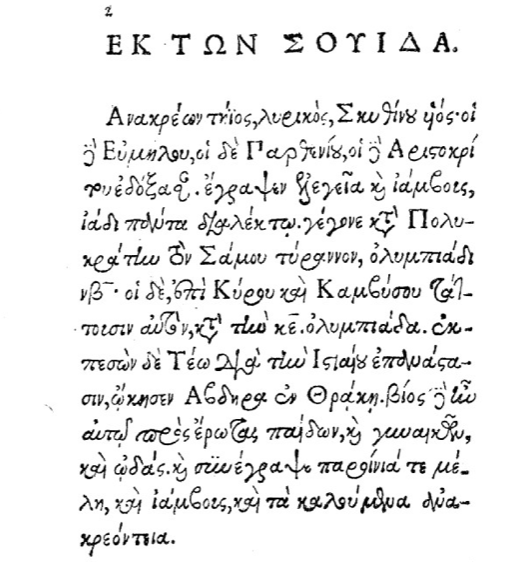 2
ΕΚ ΤΩΝ ΣΟΥΙΔΑ.
Ανακρέων τήϊος, λυρικὸς, Σκυθίνου υἱός· οἱ
δὲ Εὐμήλου, οἱ δὲ Παρθενίου, οἱ δὲ Αριστοκρί
του ἐδόξασαν. ἔγραψεν ἐλεγεῖα καὶ ἰάμβους,
ἰάδι πάντα διαλέκτῳ. γέγονε κατὰ Πολυ-
κράτην τὸν Σάμου τύραννον, ὀλυμπιάδι
νβ· οἱ δὲ, ἐπὶ Κύρου καὶ Καμβύσου τάτ-
τουσιν αὐτὸν, κατὰ τὴν κε. ὀλυμπιάδα. ἐκ-
πεσὼν δὲ Τέω διὰ τὴν Ιστιαίου ἐπανάστα-
σιν, ᾤκησεν Αβδηρα ἐν Θράκῃ. βίος δὲ ἦν
αὐτῷ πρὸς ἔρωτας παίδων, καὶ γυναικῶν,
καὶ ᾠδάς. καὶ συνέγραψε παροίνιά τε μέ-
λη, καὶ ἰάμβους, καὶ τὰ καλούμενα ἀνα-
κρεόντεια.